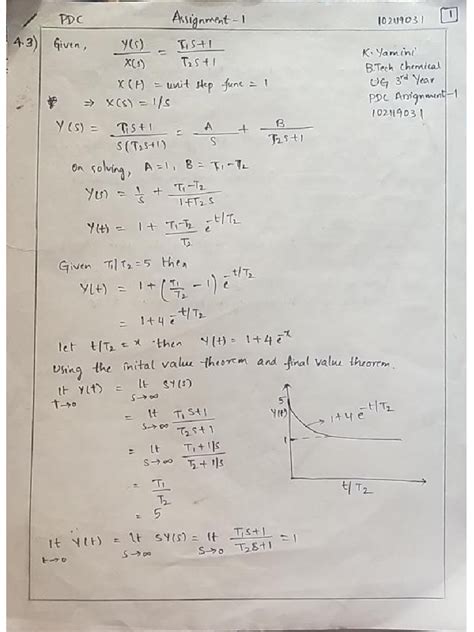 PDC Assignment-1 102119031 1
4.3) Given, Y(s)/X(s) = T₁s+1/T₂s+1
K. Yamini
B.Tech Chemical
UG 3rd Year
PDC Assignment-1
102119031
X(t) = unit step func = 1
⇒ X(s) = 1/s
Y(s) = T₁s+1/s(T₂s+1) = A/s + B/T₂s+1
On solving, A=1, B=T₁-T₂
Y(s) = 1/s + T₁-T₂/1+T₂s
Y(t) = 1 + T₁-T₂/T₂ e^-t/T₂
Given T₁/T₂=5 then
Y(t) = 1+(T₁/T₂ -1) e^-t/T₂
= 1+4e^-t/T₂
let t/T₂ = x then Y(t) = 1+4e^-x
Using the inital value theorem and final value theorem.
lt t→0 Y(t) = lt s→∞ SY(s)
= lt s→∞ T₁s+1/T₂s+1
= lt s→∞ T₁+1/s/T₂+1/s
= T₁/T₂
= 5
5
Y(t)
1
1+4e^-t/T₂
t/T₂
lt t→∞ Y(t) = lt s→∞ SY(s) = lt s→0 T₁s+1/T₂s+1 = 1